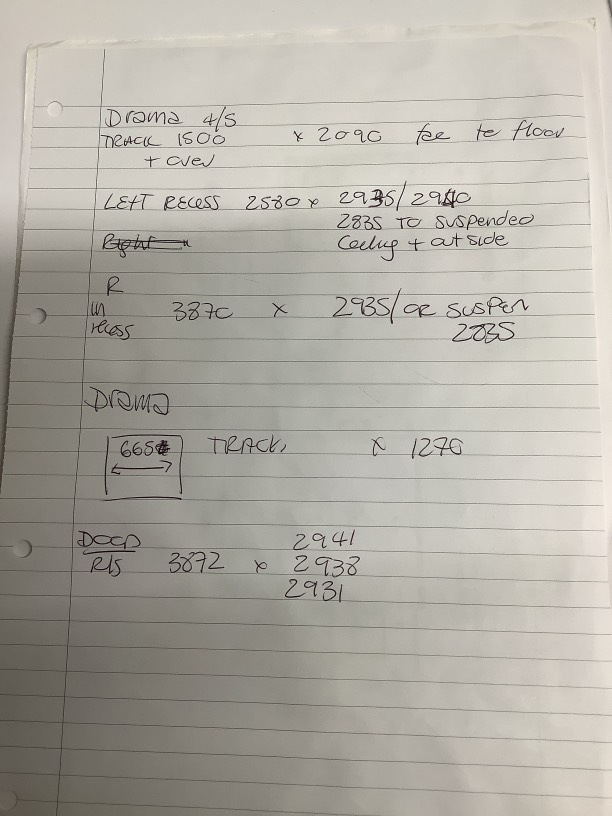 Drama 4/S
TRACK 1500 x 2090 fee te floor
+ over
LEFT RECESS 2580 x 2935/2940
2835 TO SUSPENDED
Right
Ceeling + out side
R
in 3870 x 2935/OR SUSPEN
recess 2835
Drama
665 TRACK x 1270
DOOD 2941
R/S 3872 x 2938
2931